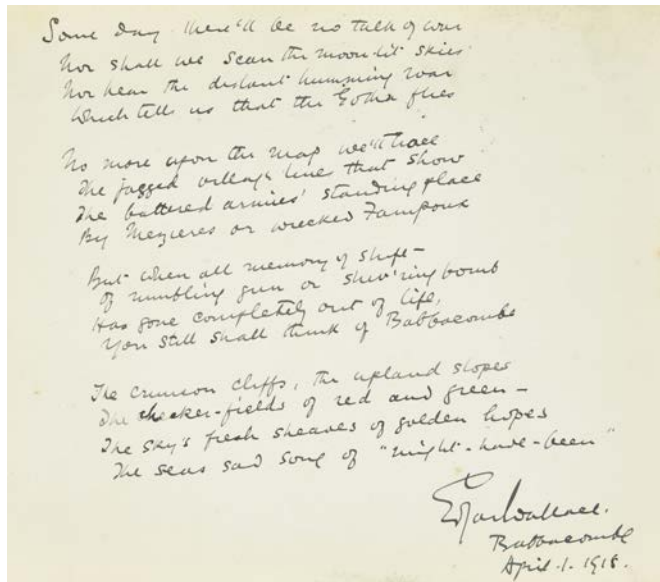 Some day there'll be no talk of war
Nor shall we scan the moon-lit skies
Nor hear the distant humming roar
Which tells us that the Gotha flies
No more upon the map we'll trace
The jagged village lines that show
The battered armies' standing place
By Mezieres or wrecked Fampoux
But when all memory of strife —
Of rumbling gun or shiv'ring bomb
Has gone completely out of life,
You still shall think of Babbacombe
The crimson cliffs, the upland slopes
The checker-fields of red and green —
The sky's fresh sheaves of golden hopes
The seas sad song of "might-have-been"
Edgar Wallace.
Babbacombe
April. 1. 1918.